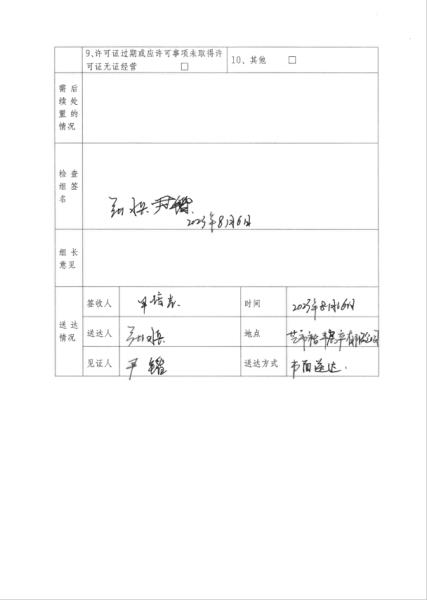 9、许可证过期或应许可事项未取得许
可证无证经营 □
10、其他 □
需后
续处
置的
情况
检查
组签
名
2023年8月16日
组长
意见
送达
情况
签收人
时间 2023年8月16日
送达人
地点
见证人
送达方式 书面送达.